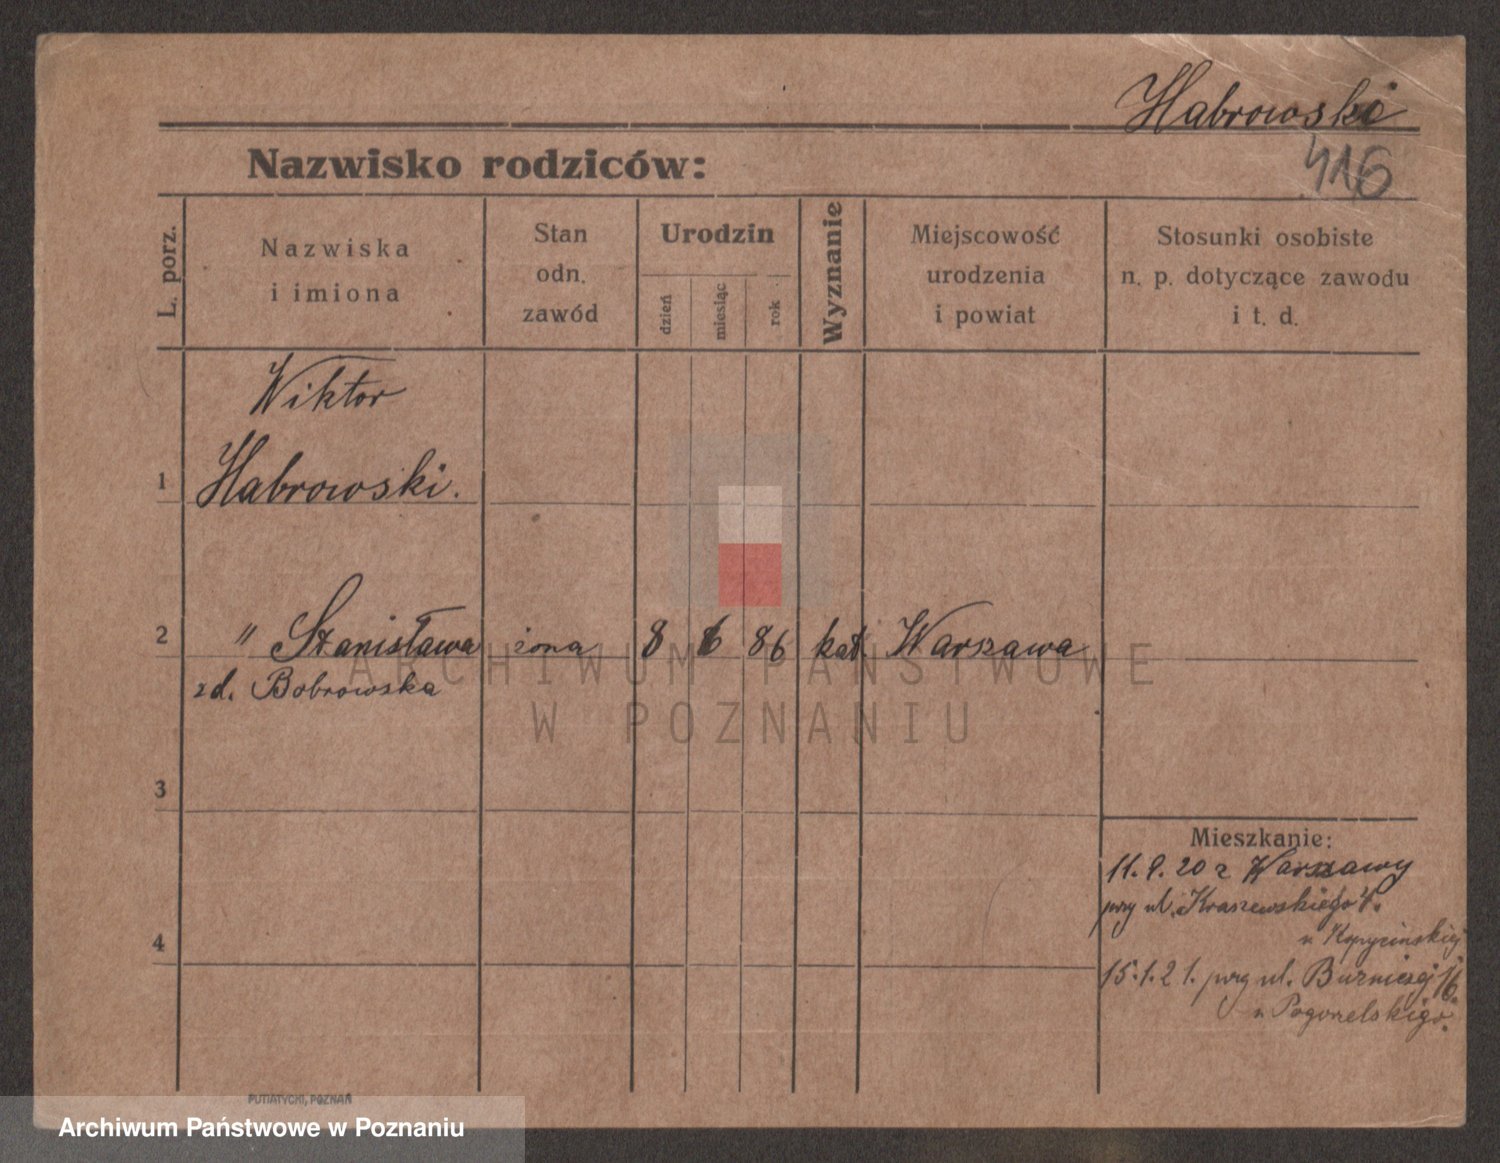 Habrowski
416
Nazwisko rodziców:
L. porz.
Nazwiska
i imiona
Stan
odn.
zawód
Urodzin
dzień
miesiąc
rok
Wyznanie
Miejscowość
urodzenia
i powiat
Stosunki osobiste
n. p. dotyczące zawodu
i t. d.
Wiktor
1 Habrowski.
2 " Stanisława żona 8 6 86 kat. Warszawa
zd. Bobrowska
ARCHIWUM PAŃSTWOWE
W POZNANIU
3
Mieszkanie:
11. 9. 20 z Warszawy
przy ul. Kraszewskiego 4.
u Kopycińskiej
4
15.1.21. przy ul. 16.
u Pogorzelskiego.
PUTIATYCKI, POZNAŃ
Archiwum Państwowe w Poznaniu